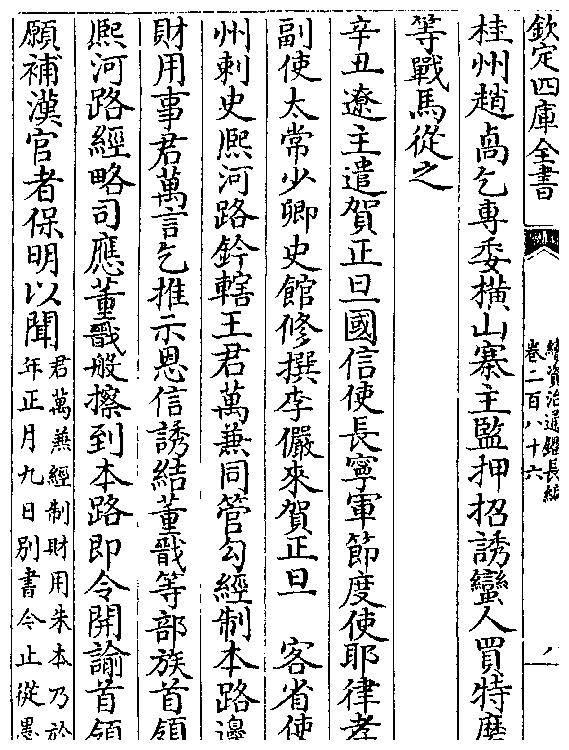 欽定四庫全書
續資治通鑑長編
卷二百八十六
桂州趙卨乞專委橫山寨主監押招誘蠻人買特磨
等戰馬從之
辛丑遼主遣賀正旦國信使長寧軍節度使耶律孝
副使太常少卿史館修撰李儼來賀正旦 客省使
州刺史熙河路鈐轄王君萬兼同管勾經制本路邊
財用事君萬言乞推示恩信誘結董戬等部族首領
熙河路經略司應董戬般擦到本路即令開諭首領
願補漢官者保明以聞
君萬兼經制財用朱本乃於
年正月九日別書今止從墨